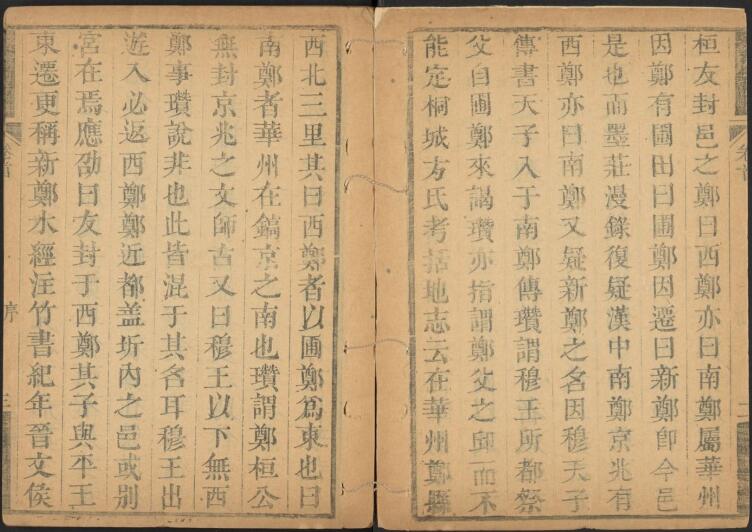 桓友封邑之鄭曰西鄭亦曰南鄭屬華州
因鄭有圃田曰圃鄭因遷曰新鄭卽今邑
是也而墨莊漫錄復疑漢中南鄭京兆有
西鄭亦曰南鄭又疑新鄭之名因穆天子
傳書天子入于南鄭傳瓚謂穆王所都祭
父自圃鄭來謁瓚亦指謂鄭父之邱而不
能定桐城方氏考括地志云在華州鄭縣
西北三里其曰西鄭者以圃鄭爲東也曰
南鄭者華州在鎬京之南也瓚謂鄭桓公
無封京兆之文師古又曰穆王以下無西
鄭事瓚說非也此皆混于其名耳穆王出
遊入必返西鄭鄭近都盖圻內之邑或別
宮在焉應劭曰友封于西鄭其子與平王
東遷更稱新鄭水經注竹書紀年晉文侯
序
三